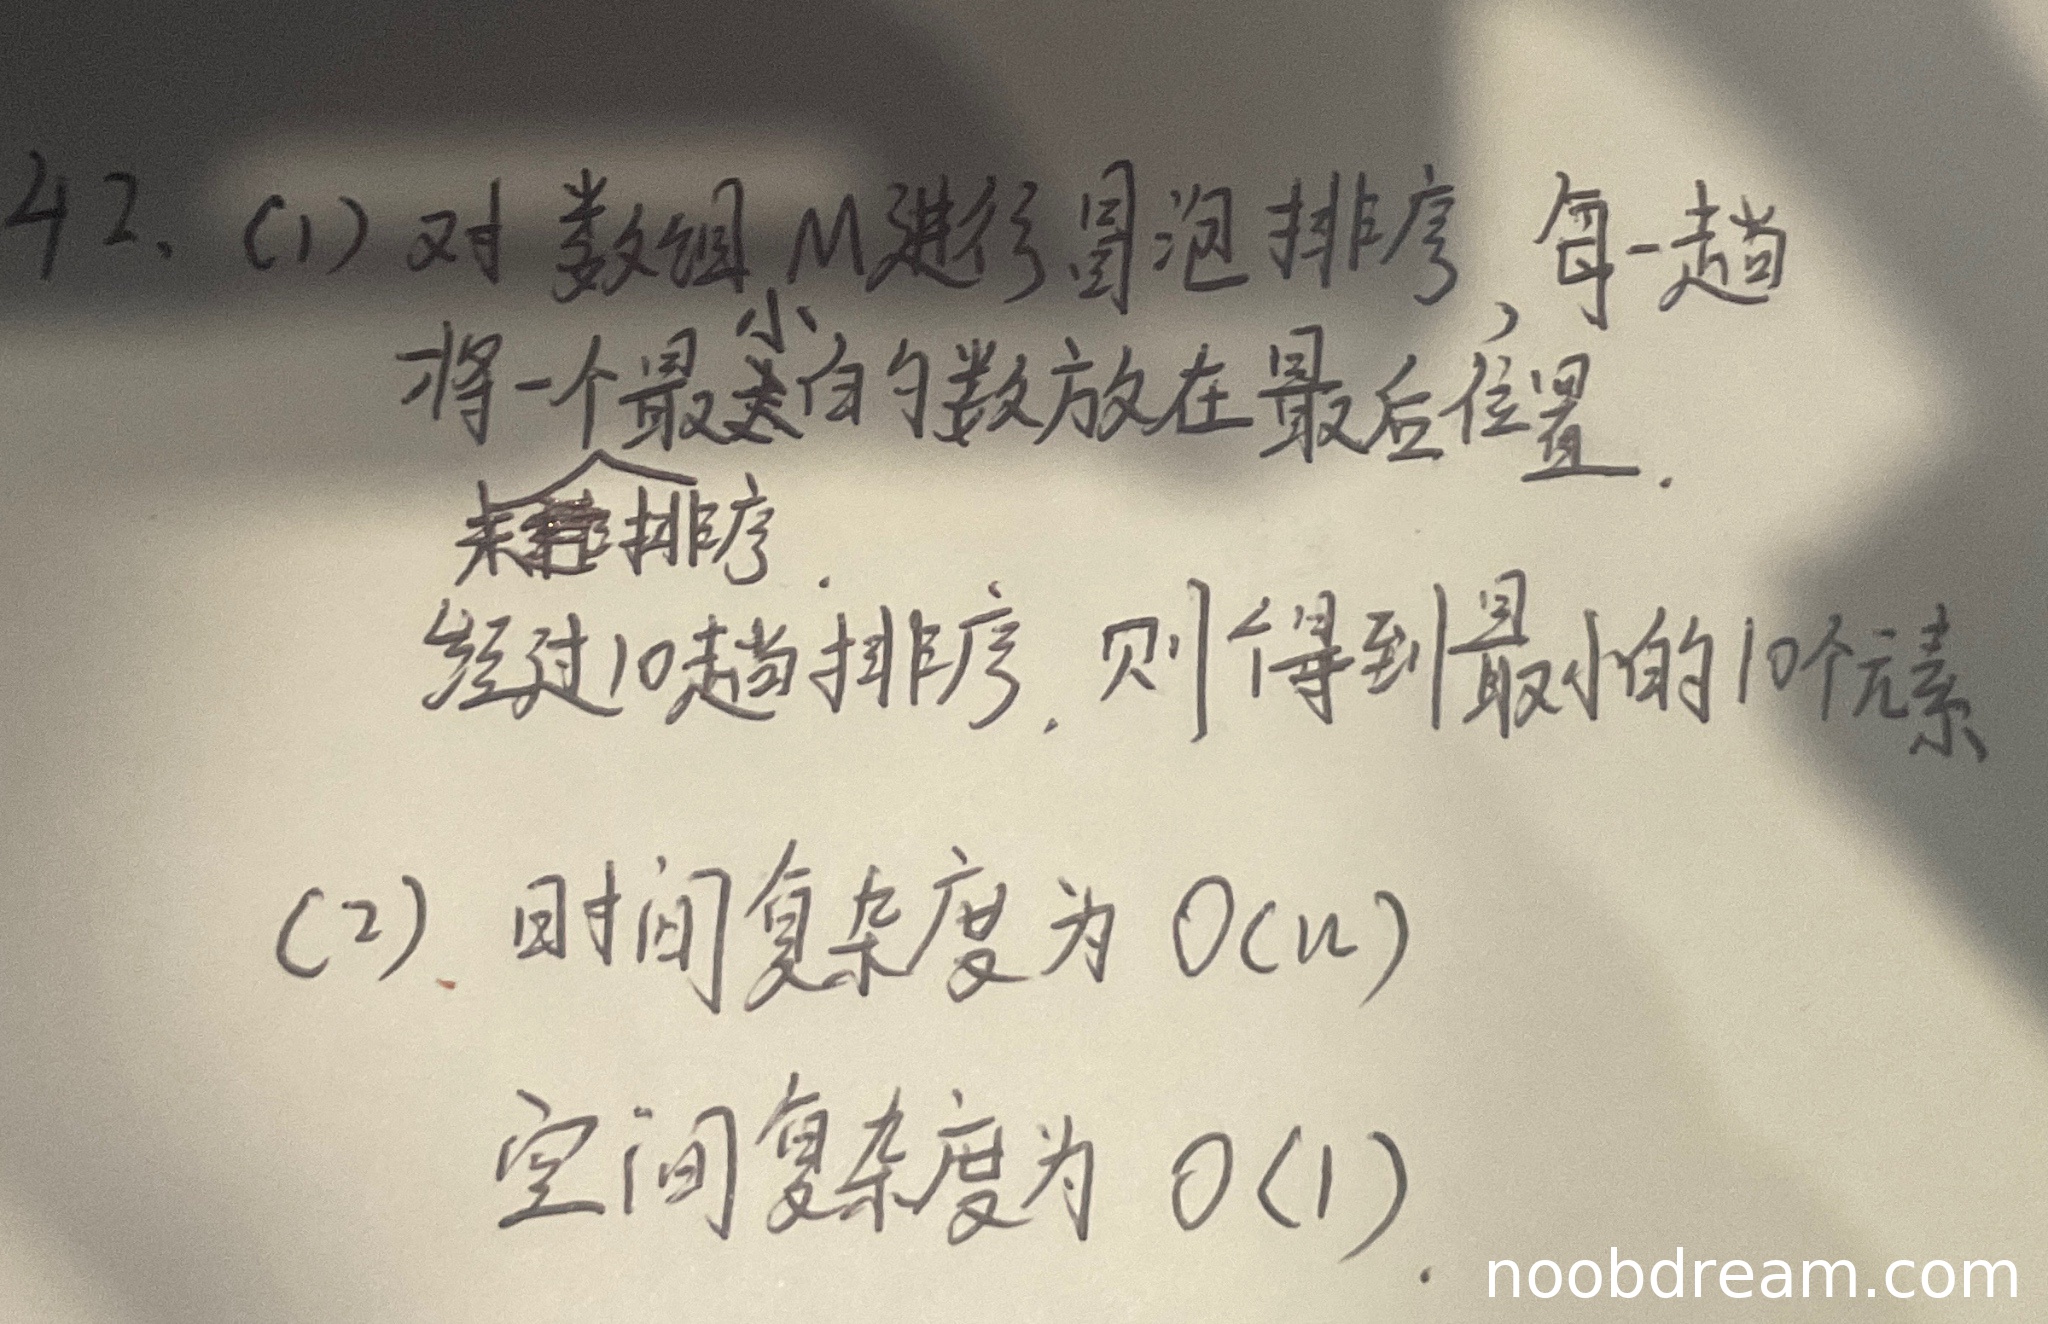 42. (1) 对数组M进行冒泡排序，每一趟
将一个最小的数放在最后位置.
未排序.
经过10趟排序.则得到最小的10个元素
(2)、时间复杂度为 O(n)
空间复杂度为 O(1).
noobdream.com